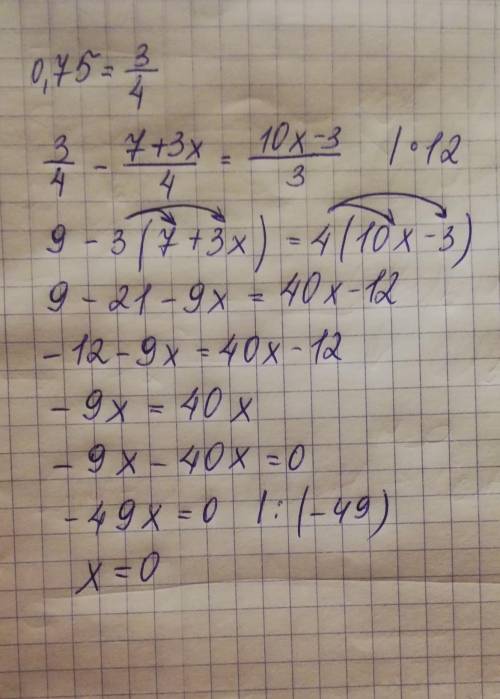 0,75 = 3/4
3/4 - (7+3x)/4 = (10x-3)/3 | • 12
9 - 3(7+3x) = 4(10x-3)
9 - 21 - 9x = 40x - 12
-12 - 9x = 40x - 12
-9x = 40x
-9x - 40x = 0
-49x = 0 | : (-49)
x = 0